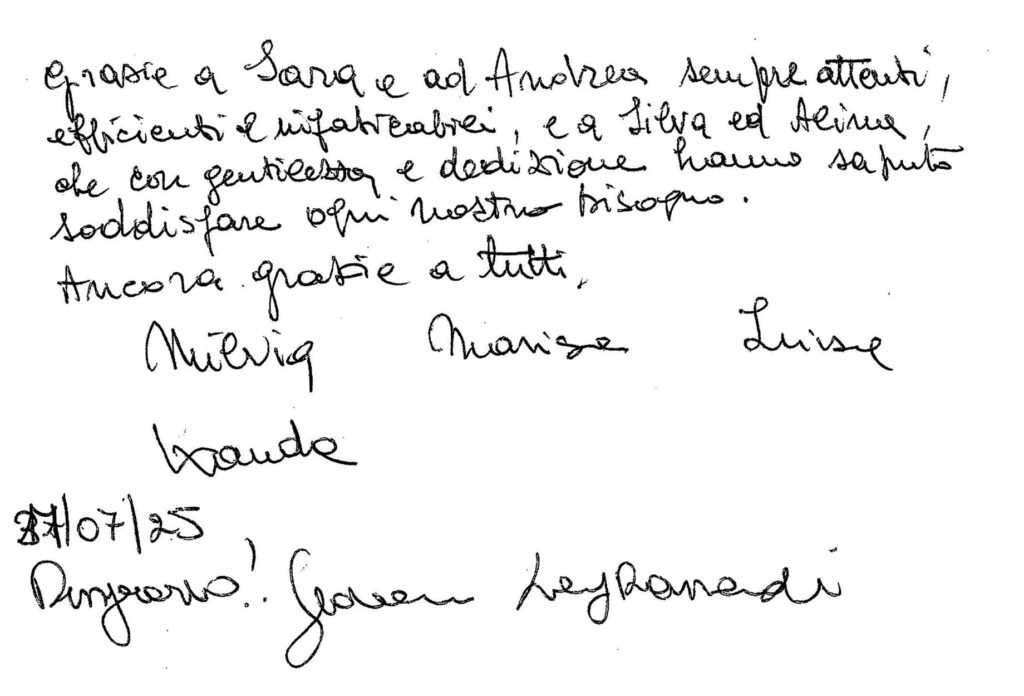 Grazie a Sara e ad Andrea sempre attenti,
efficienti e infaticabili, e a Silva ed Alina,
che con gentilezza e dedizione hanno saputo
soddisfare ogni nostro bisogno.
Ancora grazie a tutti.
Milvia Marisa Luisa
Wanda
/07/25